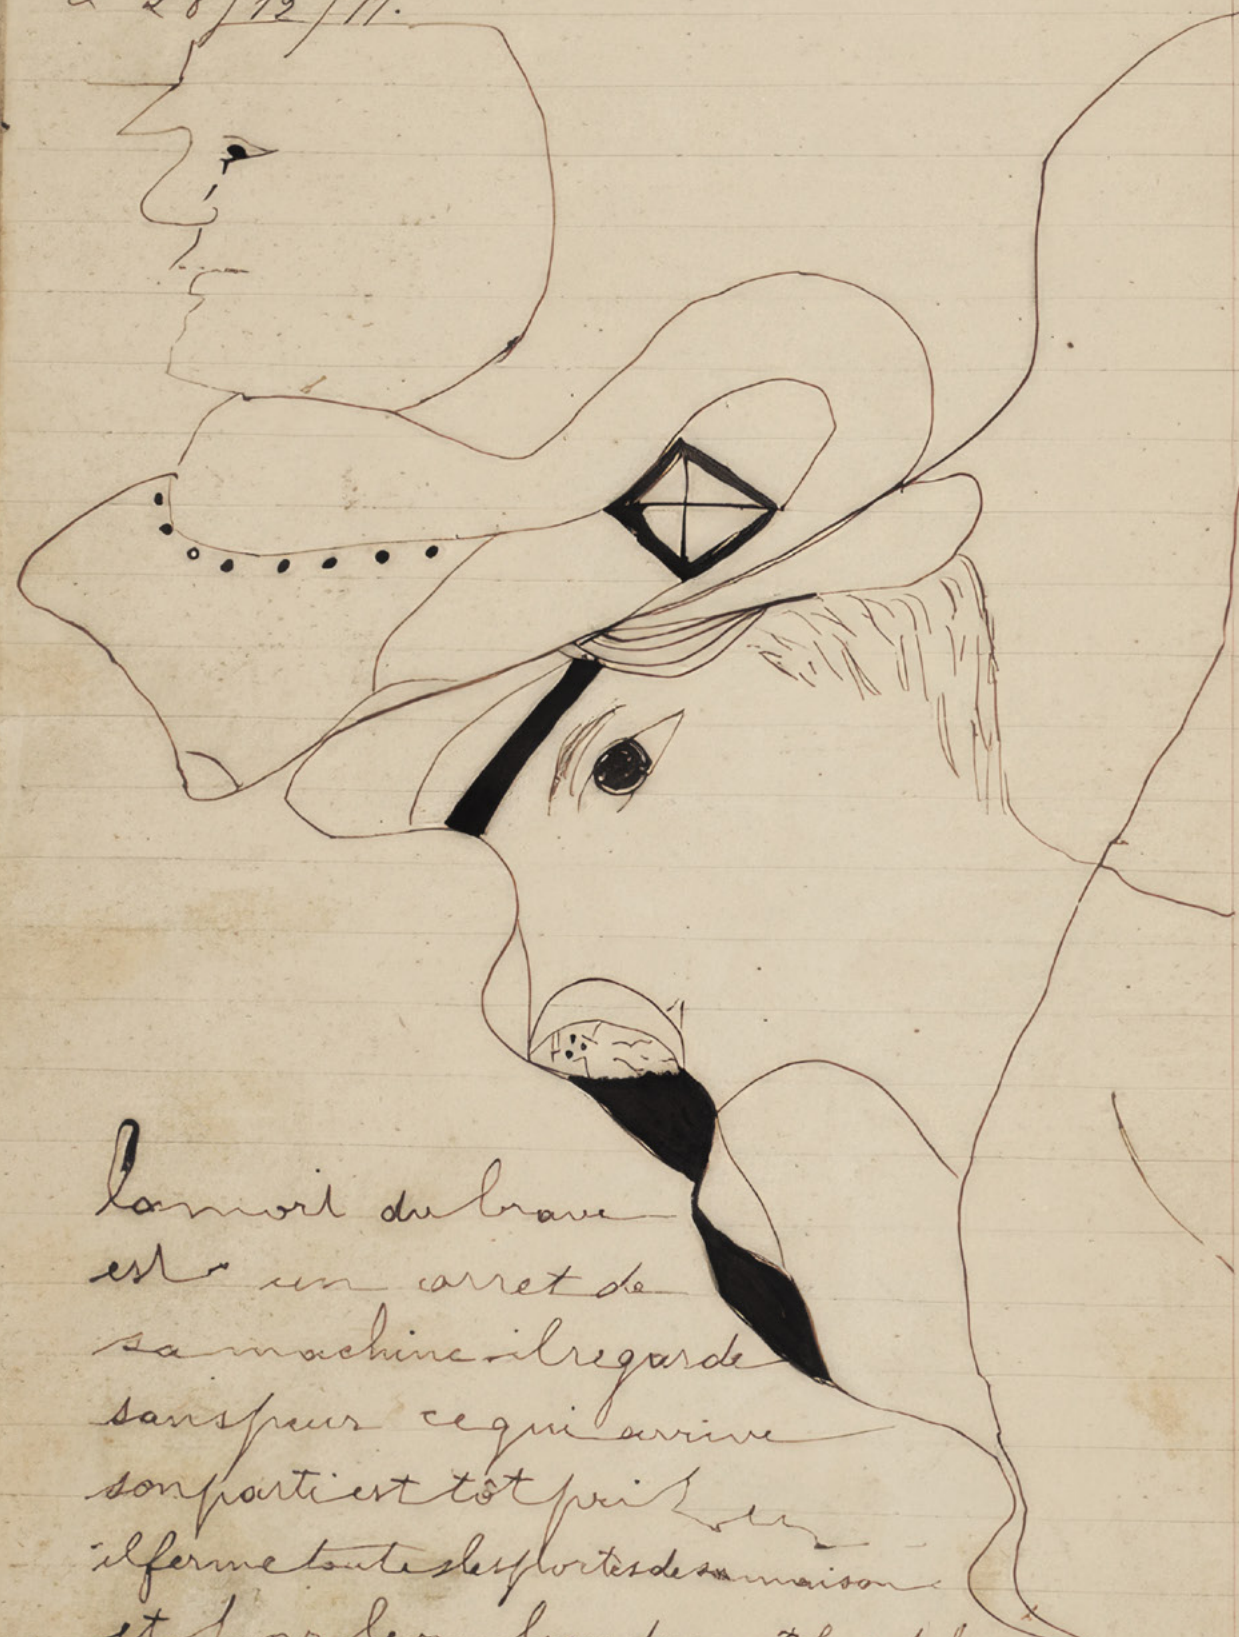 a 28/12/11.
lamort du brave
est un arret de
samachine ilregarde
sanspeur cequi arrive
sonpartiest tôt pri
ilferme toutes lesportes desamaison
et